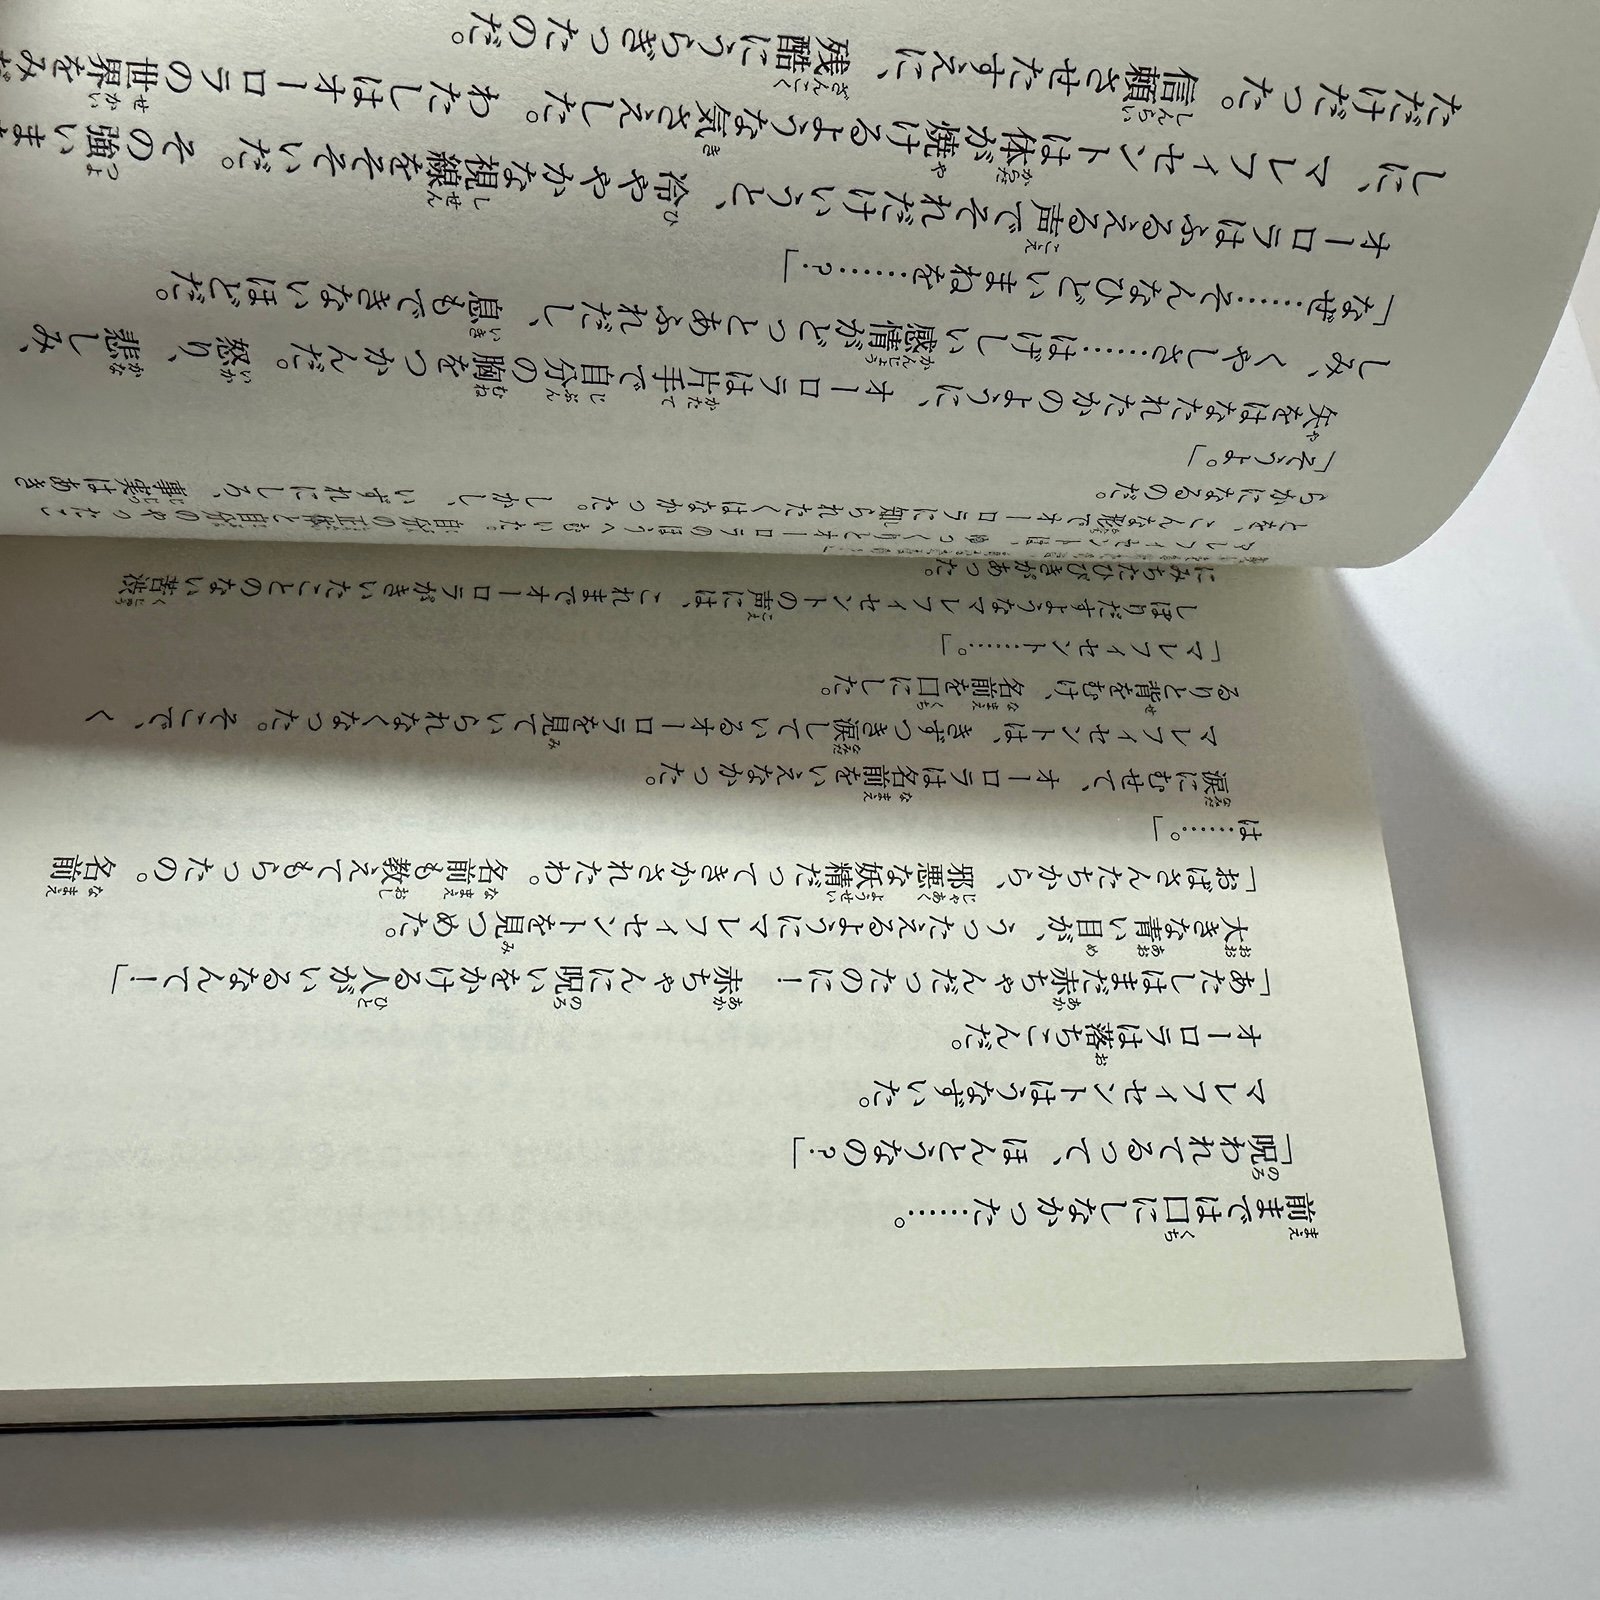 前までは口にしなかった……。
「呪われてるって、ほんとうなの?」
マレフィセントはうなずいた。
オーロラは落ちこんだ。
「あたしはまだ赤ちゃんだったのに! 赤ちゃんに呪いをかける人がいるなんて!」
大きな青い目が、うったえるようにマレフィセントを見つめた。
「おばさんたちから、邪悪な妖精だってきかされたわ。名前も教えてもらったの。名前
は……。」
涙にむせて、オーロラは名前をいえなかった。
マレフィセントは、きずつき涙しているオーロラを見ていられなくなった。そこで、く
るりと背をむけ、名前を口にした。
「マレフィセント……。」
しぼりだすようなマレフィセントの声には、これまでオーロラがきいたことのない苦渋
にみちたひびきがあった。
マレフィセントは、ゆっくりとオーロラのほうへむいた。自分の正体と自分のやったこ
とを、こんな形でオーロラに知られたくはなかった。しかし、いずれにしろ、事実はあき
らかになるのだ。
「そうよ。」
矢をはなたれたかのように、オーロラは片手で自分の胸をつかんだ。怒り、悲しみ、
しみ、くやしさ……はげしい感情がどっとあふれだし、息もできないほどだ。
「なぜ……そんなひどいまねを……?」
オーロラはふるえる声でそれだけいうと、冷ややかな視線をそそいだ。その強いま
しに、マレフィセントは体が焼けるような気さえした。わたしはオーロラの世界をみだ
ただけだった。信頼させたすえに、残酷にうらぎったのだ。